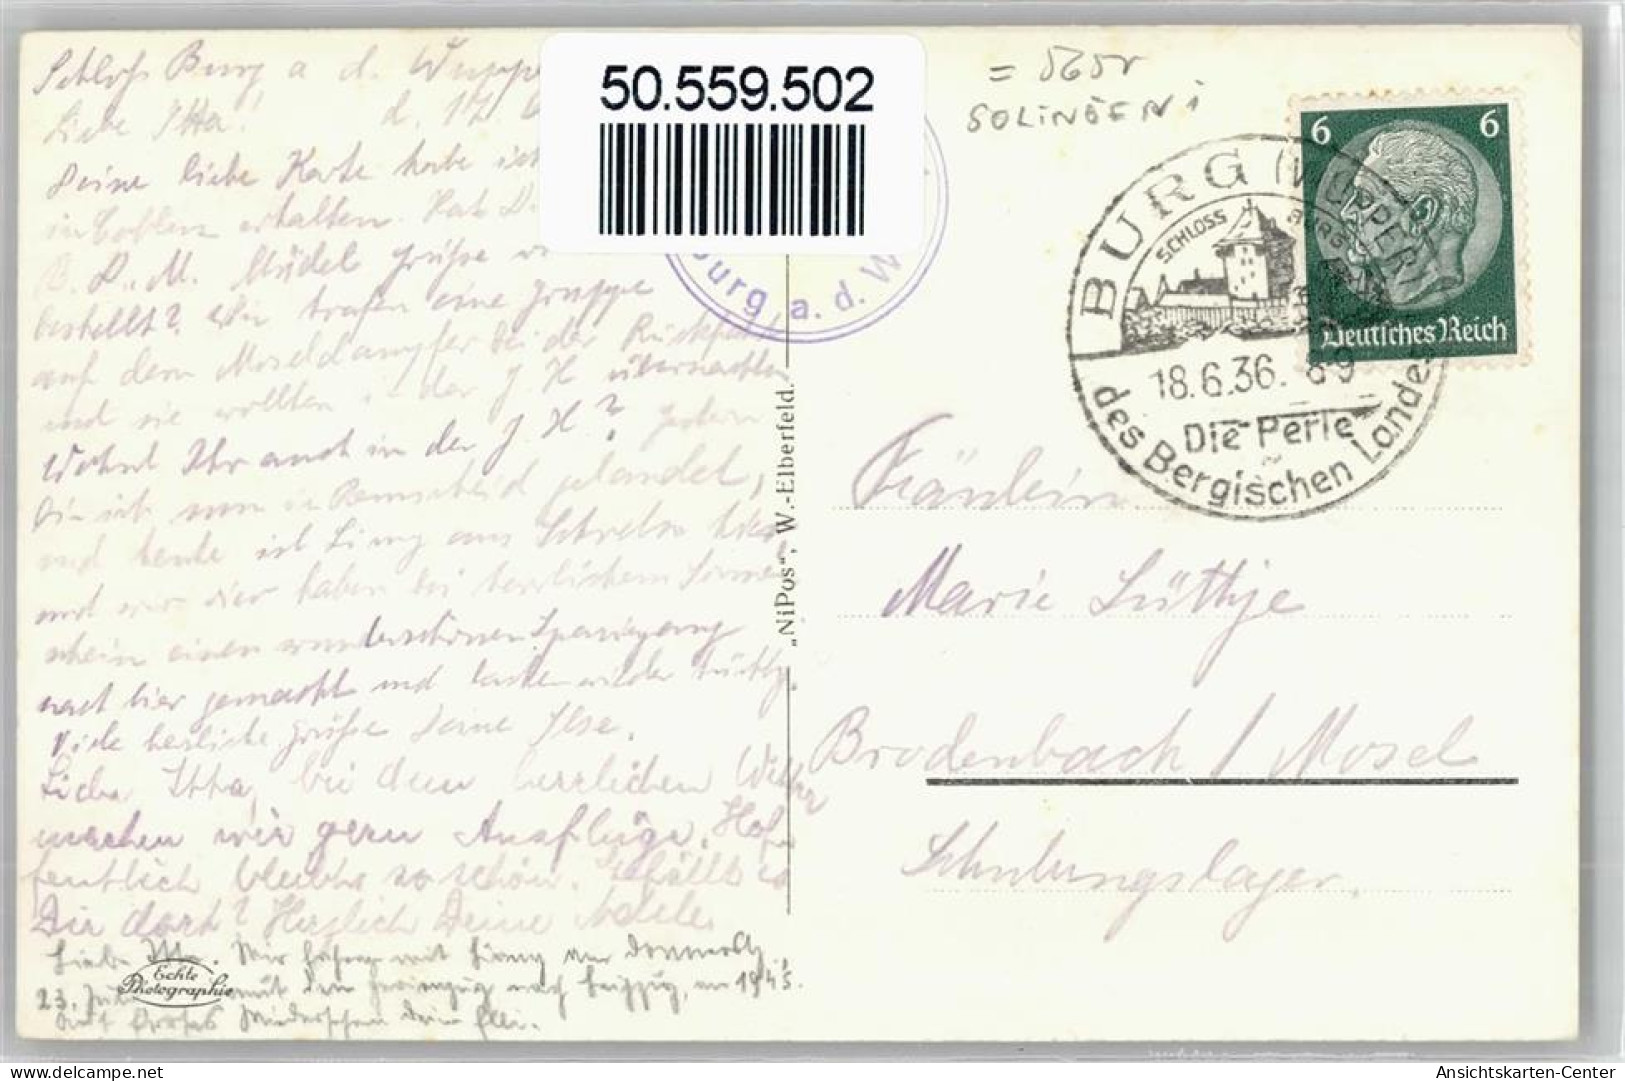 Schloß Burg a d. Wuppe
Liebe Itta! d. 17. 6
Deine liebe Karte habe ich
in Coblenz erhalten. Hat D
B. D. M. Mädel Grüße vo
bestellt? Wir trafen eine Gruppe
auf dem Moseldampfer bei der Rückfahrt
und sie wollten in der J H übernachten
Wohnt Ihr auch in der J. H.? Gestern
bin ich nun in Remscheid gelandet,
und heute ist aus hier
und wir vier haben bei herrlichem Sonnen
schein einen wunderschönen Spaziergang
nach hier gemacht und wieder tüchtig.
Viele herzliche Grüße Deine Ilse.
Liebe Itta, bei dem herrlichen Wetter
machen wir gern Ausflüge. Hof-
fentlich bleibts so schön. Gefällt es
Dir dort? Herzlich Deine Adele.
Liebe Itta. Wir fahren mit am Donnerstag,
23. mit dem nach Leipzig, um 19 45.
Auf frohes Wiedersehen dein Elli.
Echte
Photographie
50.559.502
burg a. d. W
„NiPos“, W.-Elberfeld.
= 5650
SOLINGEN 1
BURG (WUPPER)
SCHLOSS BURG
18.6.36. 8-9
Die Perle
des Bergischen Landes
6 6
Deutsches Reich
Fräulein
Marie Lüttje
Brodenbach / Mosel
Schulungslager.
www.ansichtskarten-center.de
Ansichtskarten-Center